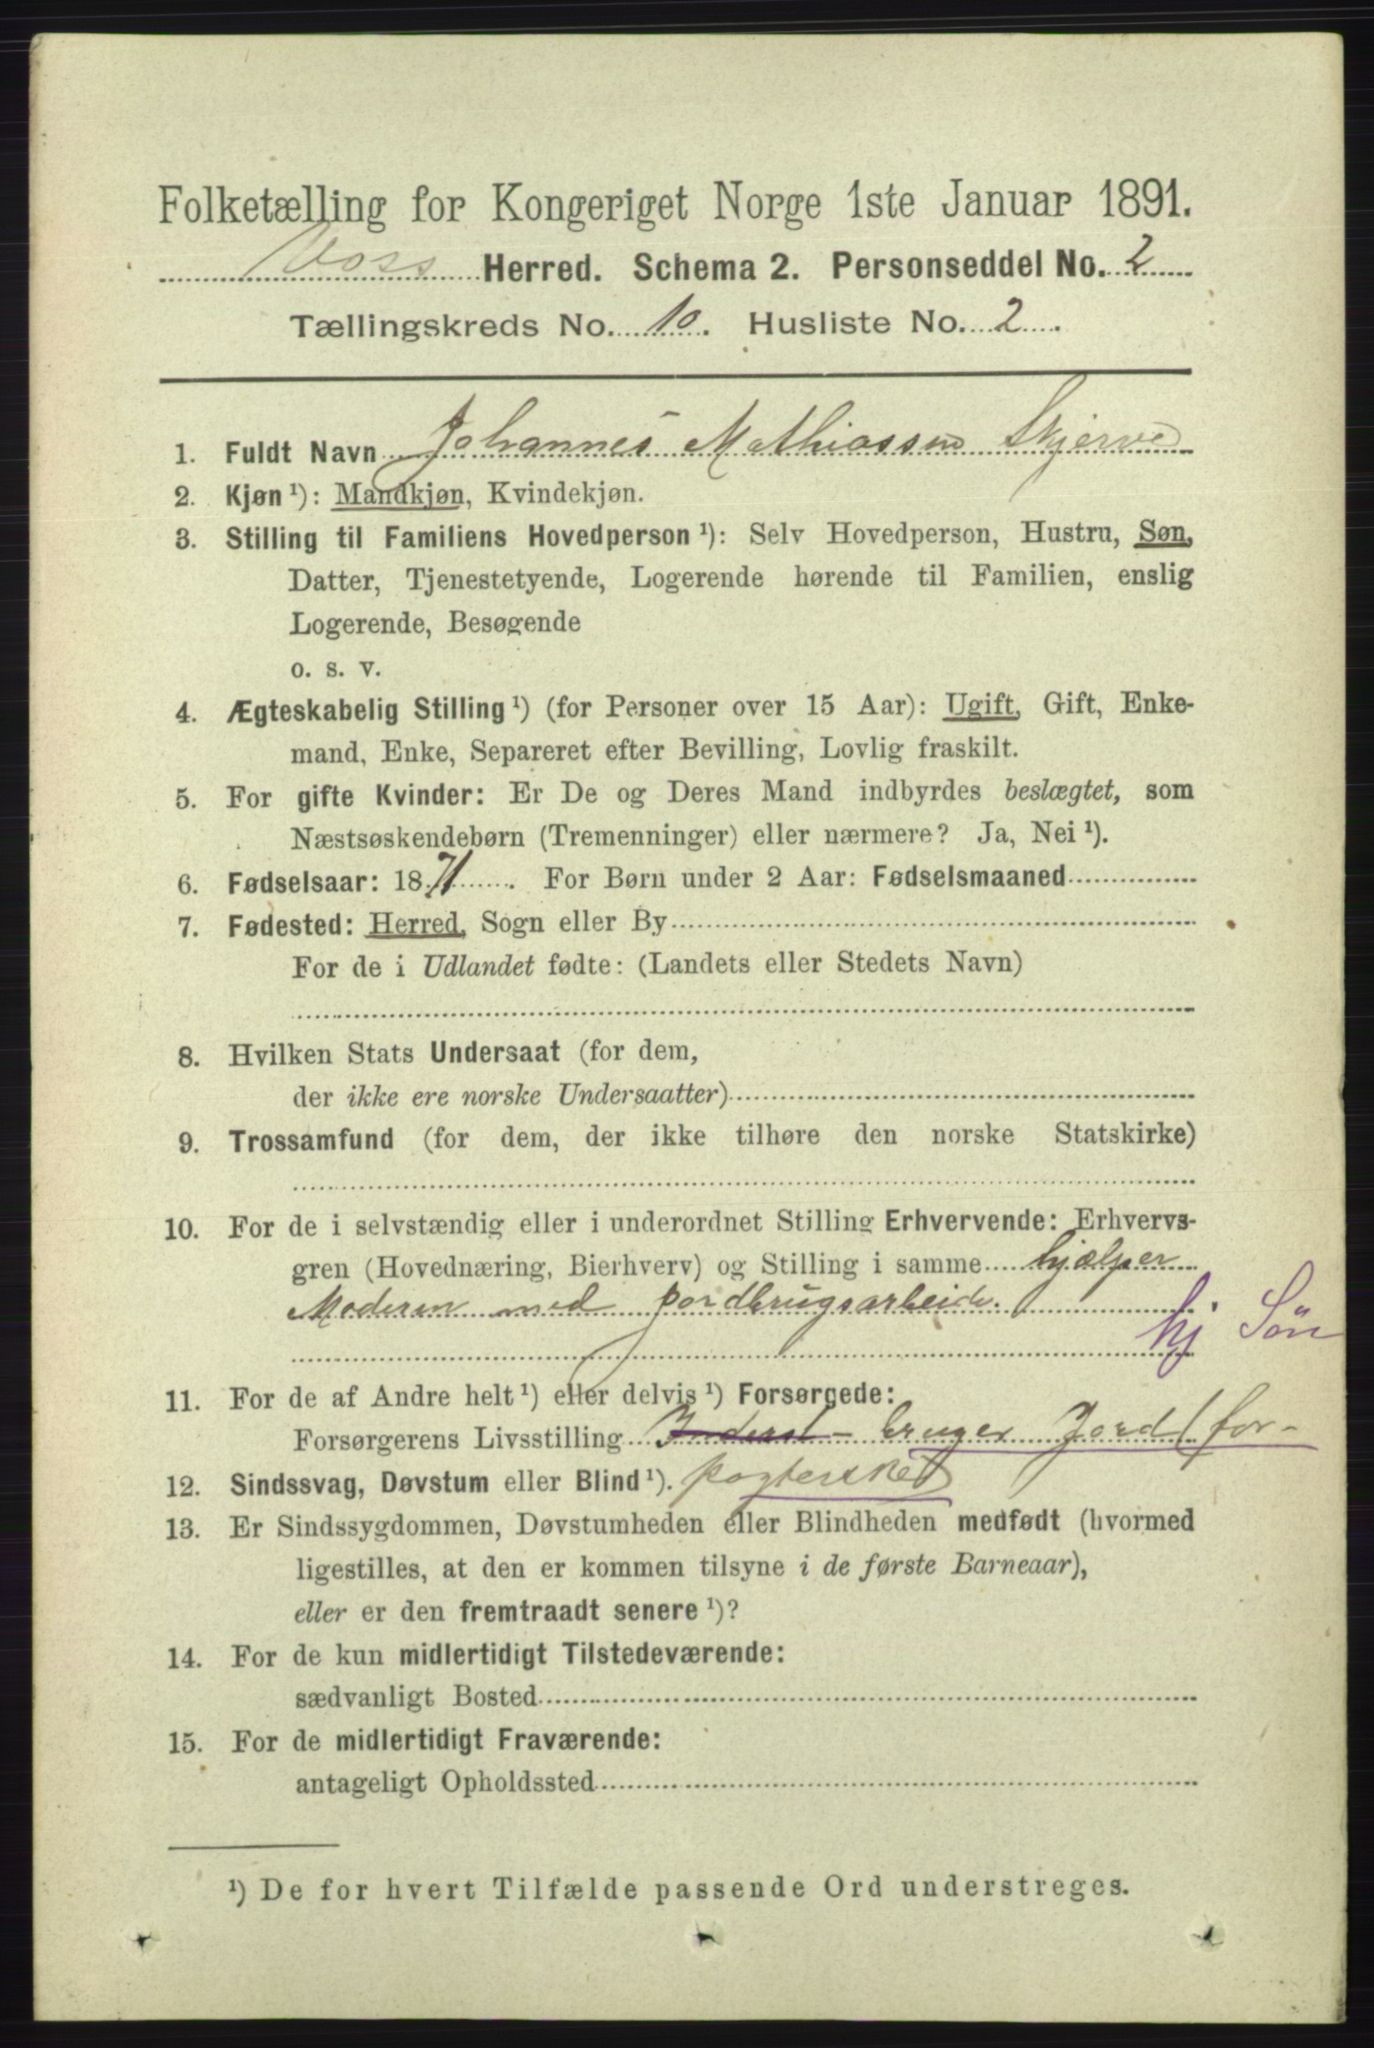 Folketælling for Kongeriget Norge 1ste Januar 1891.
Voss Herred. Schema 2. Personseddel No. 2
Tællingskreds No. 10. Husliste No. 2.
1. Fuldt Navn Johannes Mathiassen Skjerve
2. Kjøn ¹): Mandkjøn, Kvindekjøn.
3. Stilling til Familiens Hovedperson ¹): Selv Hovedperson, Hustru, Søn,
Datter, Tjenestetyende, Logerende hørende til Familien, enslig
Logerende, Besøgende
o. s. v.
4. Ægteskabelig Stilling ¹) (for Personer over 15 Aar): Ugift, Gift, Enke-
mand, Enke, Separeret efter Bevilling, Lovlig fraskilt.
5. For gifte Kvinder: Er De og Deres Mand indbyrdes beslægtet, som
Næstsøskendebørn (Tremenninger) eller nærmere? Ja, Nei ¹).
6. Fødselsaar: 1871. For Børn under 2 Aar: Fødselsmaaned
7. Fødested: Herred, Sogn eller By
For de i Udlandet fødte: (Landets eller Stedets Navn)
8. Hvilken Stats Undersaat (for dem,
der ikke ere norske Undersaatter)
9. Trossamfund (for dem, der ikke tilhøre den norske Statskirke)
10. For de i selvstændig eller i underordnet Stilling Erhvervende: Erhvervs-
gren (Hovednæring, Bierhverv) og Stilling i samme hjælper
Moderen med Jordbrugsarbeide.
hj Søn
11. For de af Andre helt ¹) eller delvis ¹) Forsørgede:
Forsørgerens Livsstilling Inderst - bruger Jord (for-
12. Sindssvag, Døvstum eller Blind ¹). pagterske)
13. Er Sindssygdommen, Døvstumheden eller Blindheden medfødt (hvormed
ligestilles, at den er kommen tilsyne i de første Barneaar),
eller er den fremtraadt senere ¹)?
14. For de kun midlertidigt Tilstedeværende:
sædvanligt Bosted
15. For de midlertidigt Fraværende:
antageligt Opholdssted
¹) De for hvert Tilfælde passende Ord understreges.